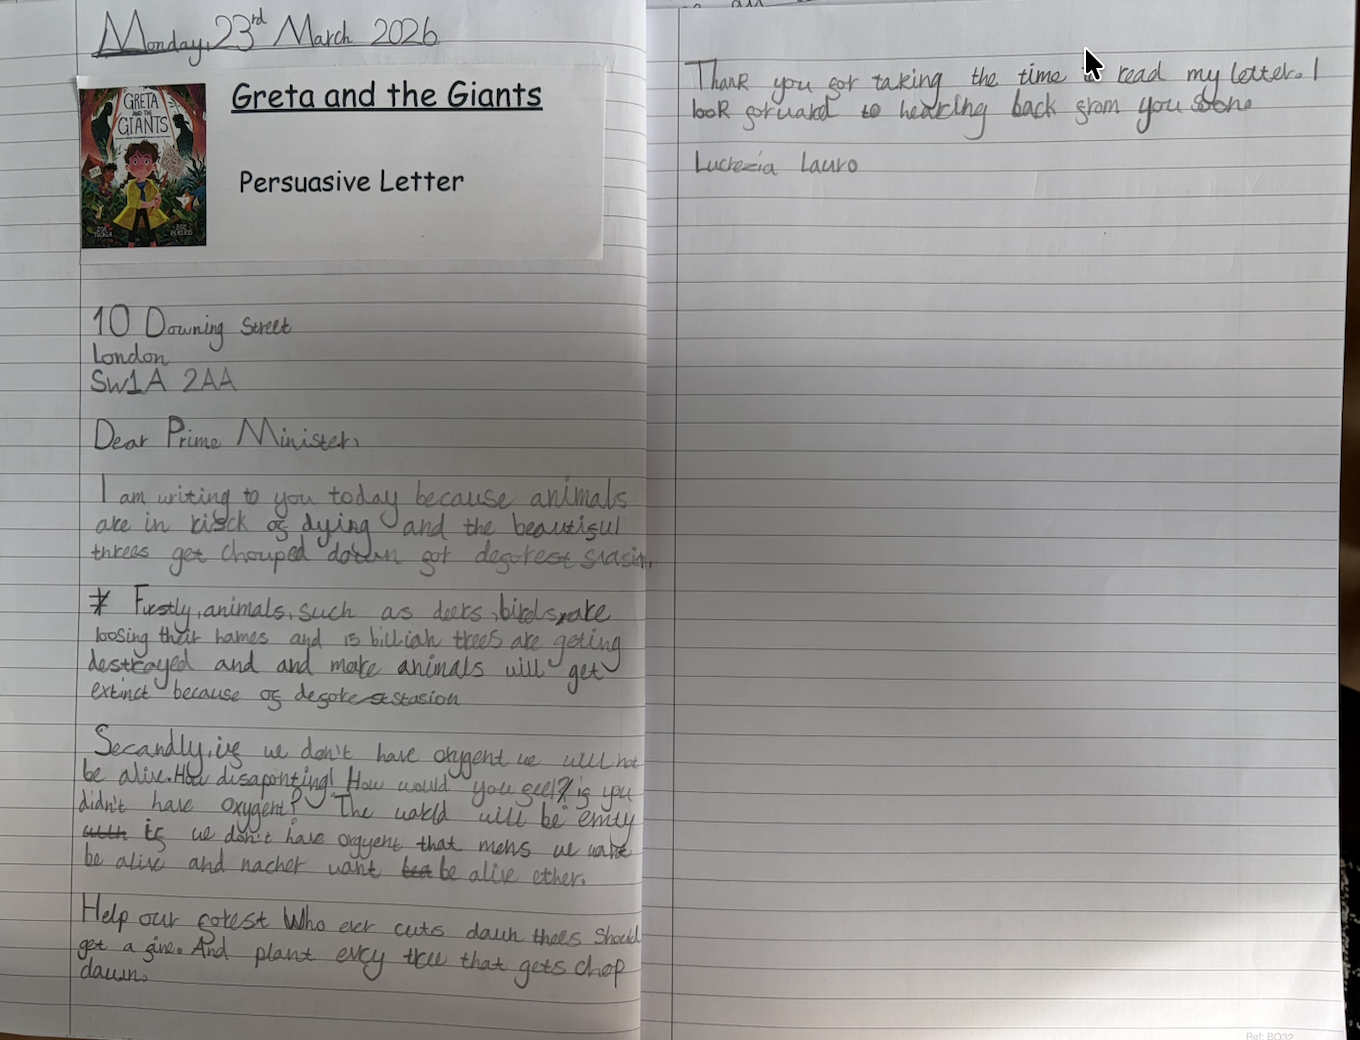 Monday, 23rd March 2026
GRETA AND THE GIANTS
Greta and the Giants
Persuasive Letter
10 Downing Street
London
SW1A 2AA
Dear Prime Minister,
I am writing to you today because animals
are in risck of dying and the beautiful
threes get chouped down for deforest
* Firstly, animals, such as deers, birds, are
loosing their homes and 15 billiah trees are geting
destroyed and and make animals will get
extinct because of deforestasion
Secandly, if we don't have oxygent we will not
be alive. How disaponting! How would you feel if you
didn't have oxygent? The world will be emty
if we don't have oxgyent that mens we wont
be alive and nacher wont be alive ether.
Help our forest Who ever cuts dawn threes Should
get a fine. And plant evry tree that gets chop
dawn.
Thank you for taking the time read my letter. I
look forward to hearing back from you soon.
Lucrezia Lauro
Ref: BO32